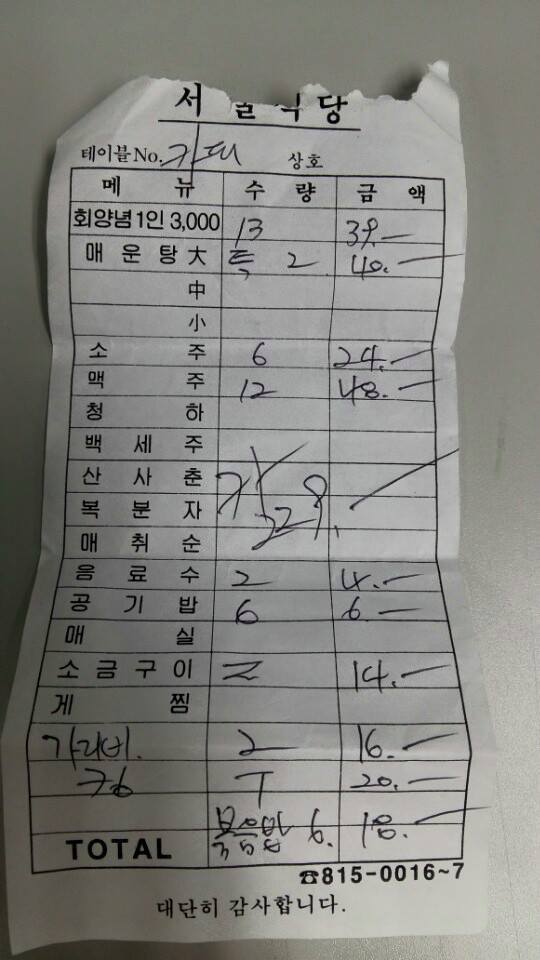 서울식당
테이블No. 상호
메 뉴 수 량 금 액
회양념1인 3,000 13 39.—
매 운 탕 大 특 2 40.—
中
小
소 주 6 24.—
맥 주 12 48.—
청 하
백 세 주
산 사 춘
복 분 자
매 취 순
음 료 수 2 4.—
공 기 밥 6 6.—
매 실
소 금 구 이 2 14.—
게 찜
가리비. 2 16.—
T 20.—
볶음밥 6. 18.—
TOTAL
☎815-0016~7
대단히 감사합니다.